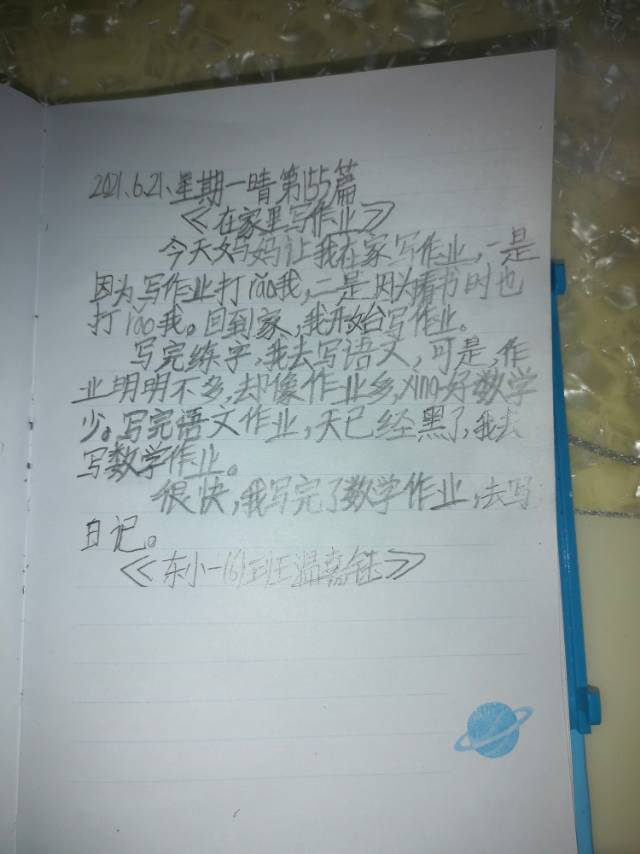 2021.6.21、星期一晴第155篇
《在家里写作业》
今天妈妈让我在家写作业,一是
因为写作业打rǎo我,二是因为看书时也
打rǎo我。回到家,我开始写作业。
写完练字,我去写语文,可是,作
业明明不多,却像作业多,xìng好数学
少。写完语文作业,天已经黑了,我去
写数学作业。
很快,我写完了数学作业,去写
日记。
《东小一(6)班温嘉钰》